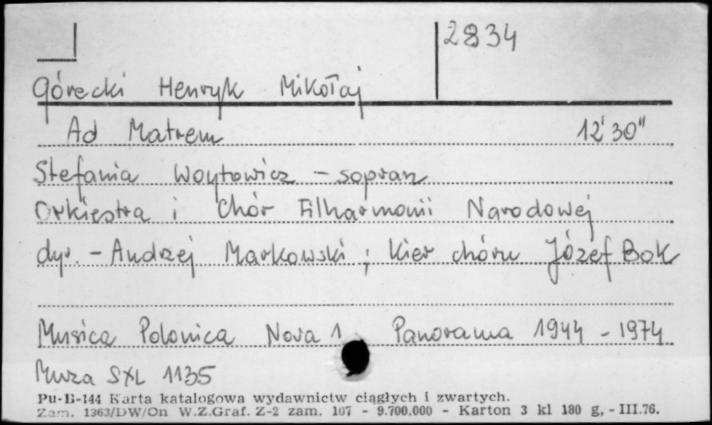 2834
Górecki Henryk Mikołaj
Ad Matrem 12'30"
Stefania Woytowicz - sopran
Orkiestra i Chór Filharmonii Narodowej
dyr. - Andrzej Markowski ; kier chóru Józef Bok
Musica Polonica Nova 1 Panorama 1944 - 1974
Muza SXL 1135
Pu-B-144 Karta katalogowa wydawnictw ciągłych i zwartych.
Zam. 1363/DW/On W.Z.Graf. Z-2 zam. 107 - 9.700.000 - Karton 3 kl 180 g, - III.76.